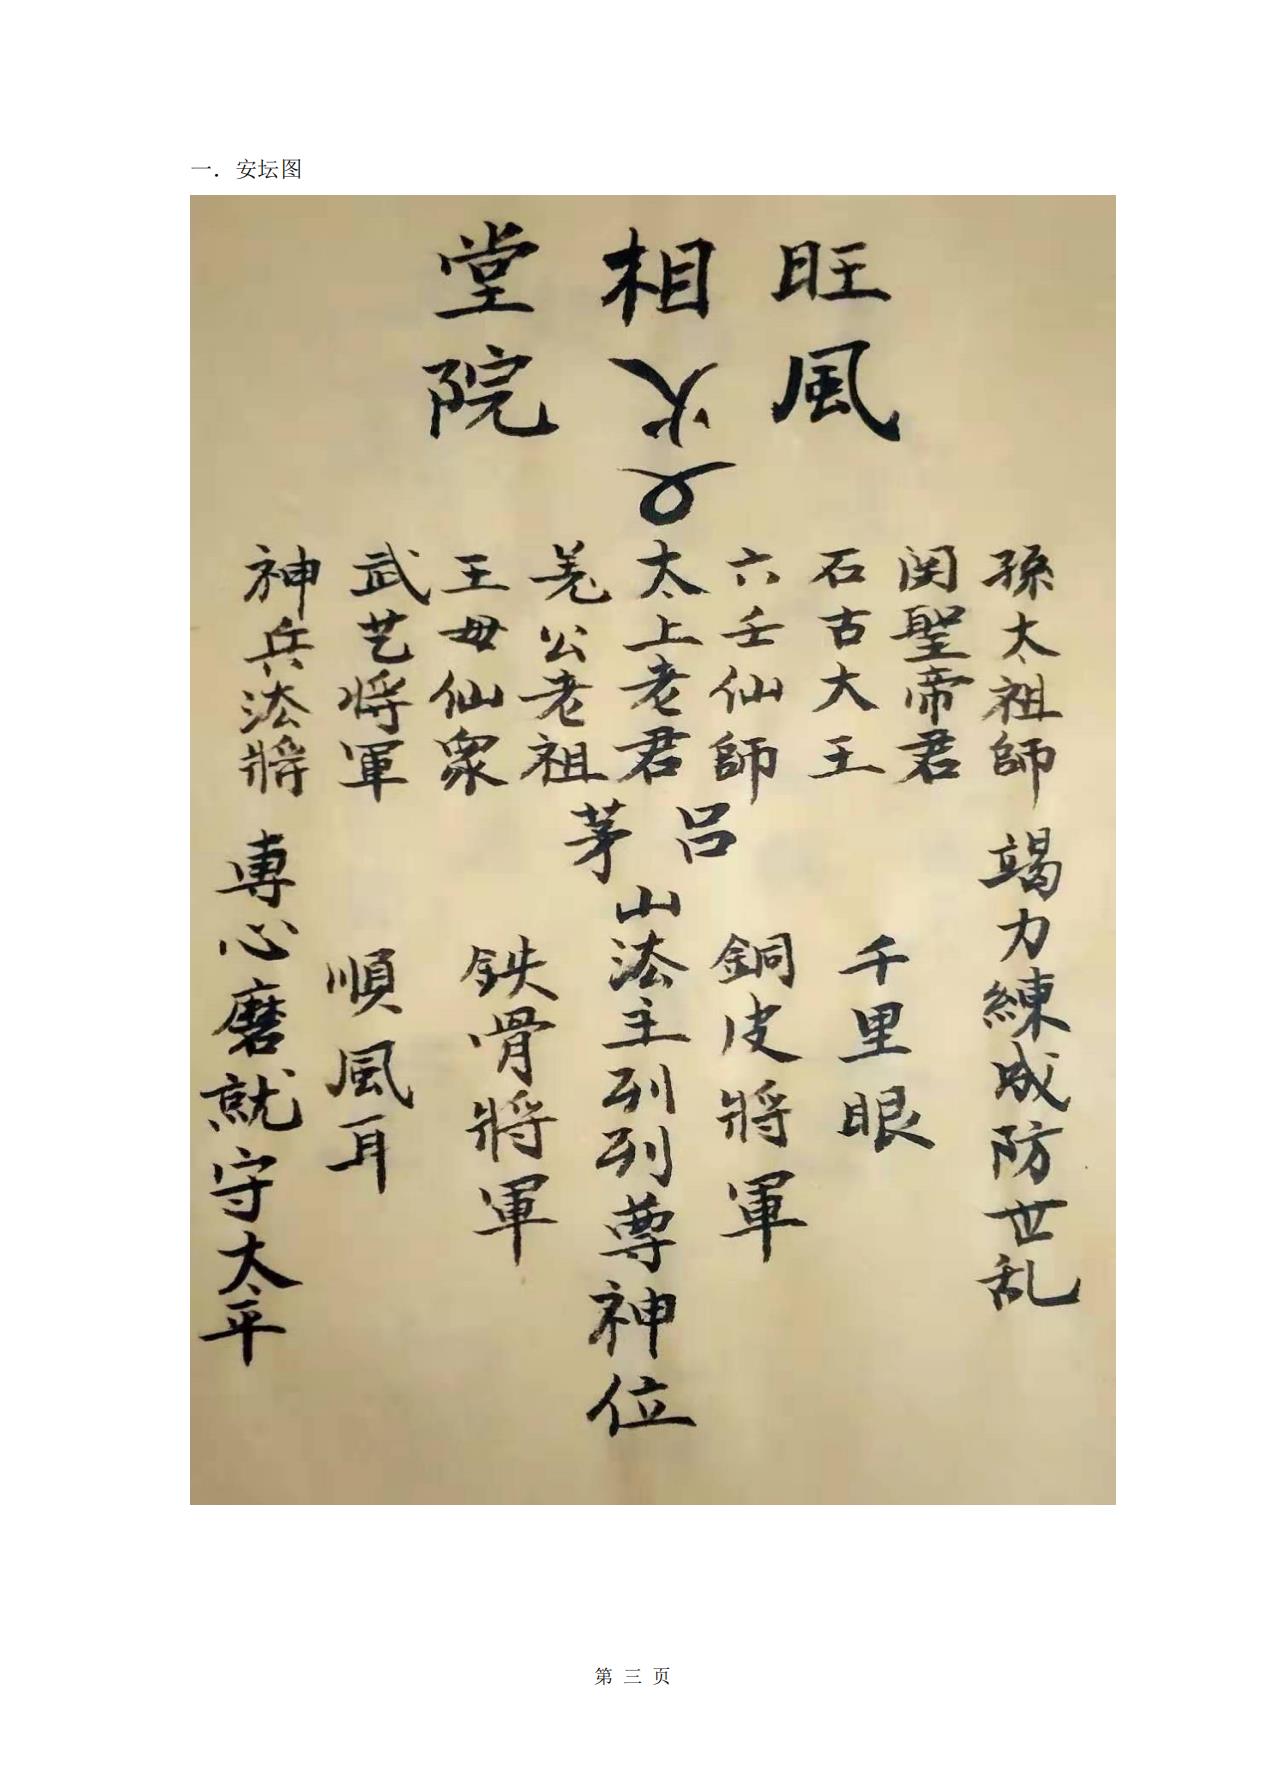 一．安坛图
旺相堂
風火院
孫太祖師
関聖帝君
石古大王
六壬仙師
太上老君
羌公老祖
王母仙眾
武艺将軍
神兵法將
竭力練成防世乱
千里眼
銅皮將軍
吕茅
山法主列列尊神位
鉄骨將軍
順風耳
專心磨就守太平
第 三 页